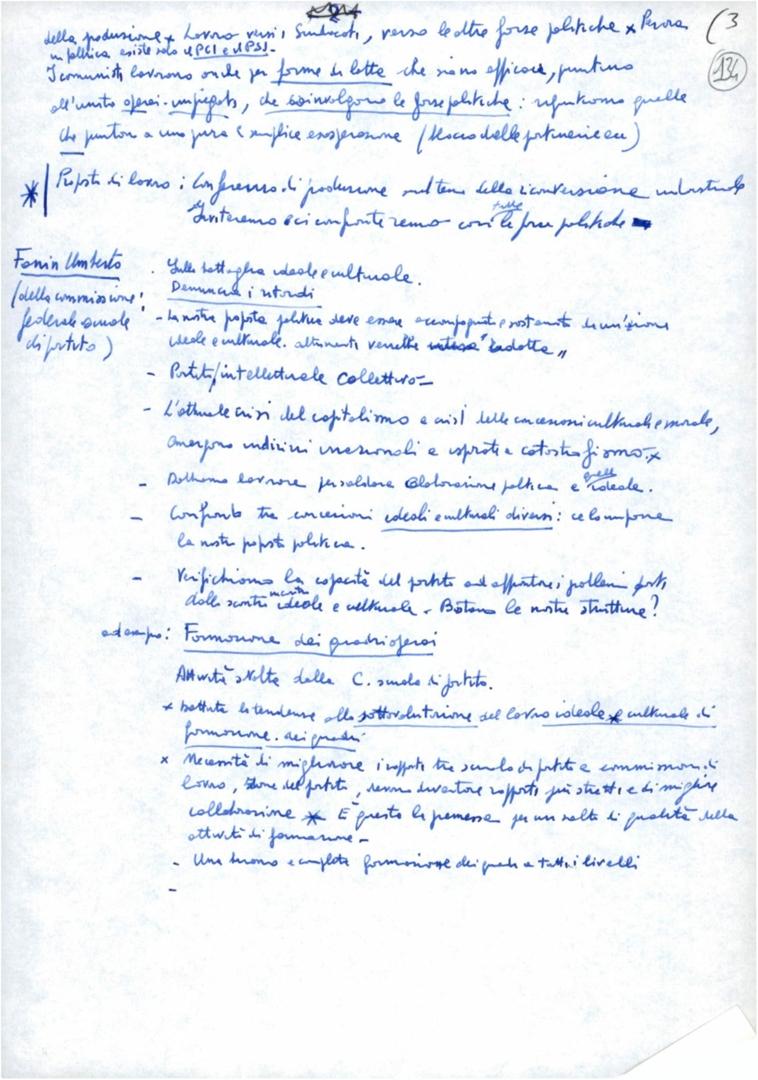 (3
134
della produzione x Lavoro verso i Sindacati, verso le altre forze politiche x Per ora
in fabbrica esiste solo il PCI e il PSI -
I comunisti lavorano anche per forme di lotta che siano efficaci, puntino
all'unità operai-impiegati, che coinvolgono le forze politiche: rifiutiamo quelle
che puntano a una pura e semplice esasperazione (blocco delle portinerie ecc)
* Proposta di lavoro: Conferenza di produzione sul tema della riconversione industriale
Inviteremo e ci confronteremo con tutte le forze politiche
Fanin Umberto
(della commissione
federale scuole
di partito)
: Sulla battaglia ideale e culturale.
Denuncia i ritardi
- La nostra proposta politica deve essere accompagnata e sostenuta da un'azione
ideale e culturale. altrimenti verrebbe "ridotta"
- Partito/intellettuale collettivo -
- L'attuale crisi del capitalismo è crisi delle concezioni culturali e morale,
emergono indirizzi irrazionali e ispirati a catastrofismo. x
- Dobbiamo lavorare per saldare elaborazione politica e quella ideale.
- Confronto tra concezioni ideali e culturali diversi: ce lo impone
la nostra proposta politica.
- Verifichiamo la capacità del partito ad affrontare i problemi posti
dallo scontro ideale e culturale - Bastano le nostre strutture?
ad esempio: Formazione dei quadri operai
Attività svolta dalla C. scuola di partito.
x battuta la tendenza alla sottovalutazione del lavoro ideale e culturale di
formazione dei quadri
x Necessità di migliorare i rapporti tra scuola di partito e commissioni di
lavoro, zone del partito, devono diventare rapporti più stretti e di migliore
collaborazione * È questa la premessa per un salto di qualità della
attività di formazione -
- Una buona e completa formazione dei quadri a tutti i livelli
-